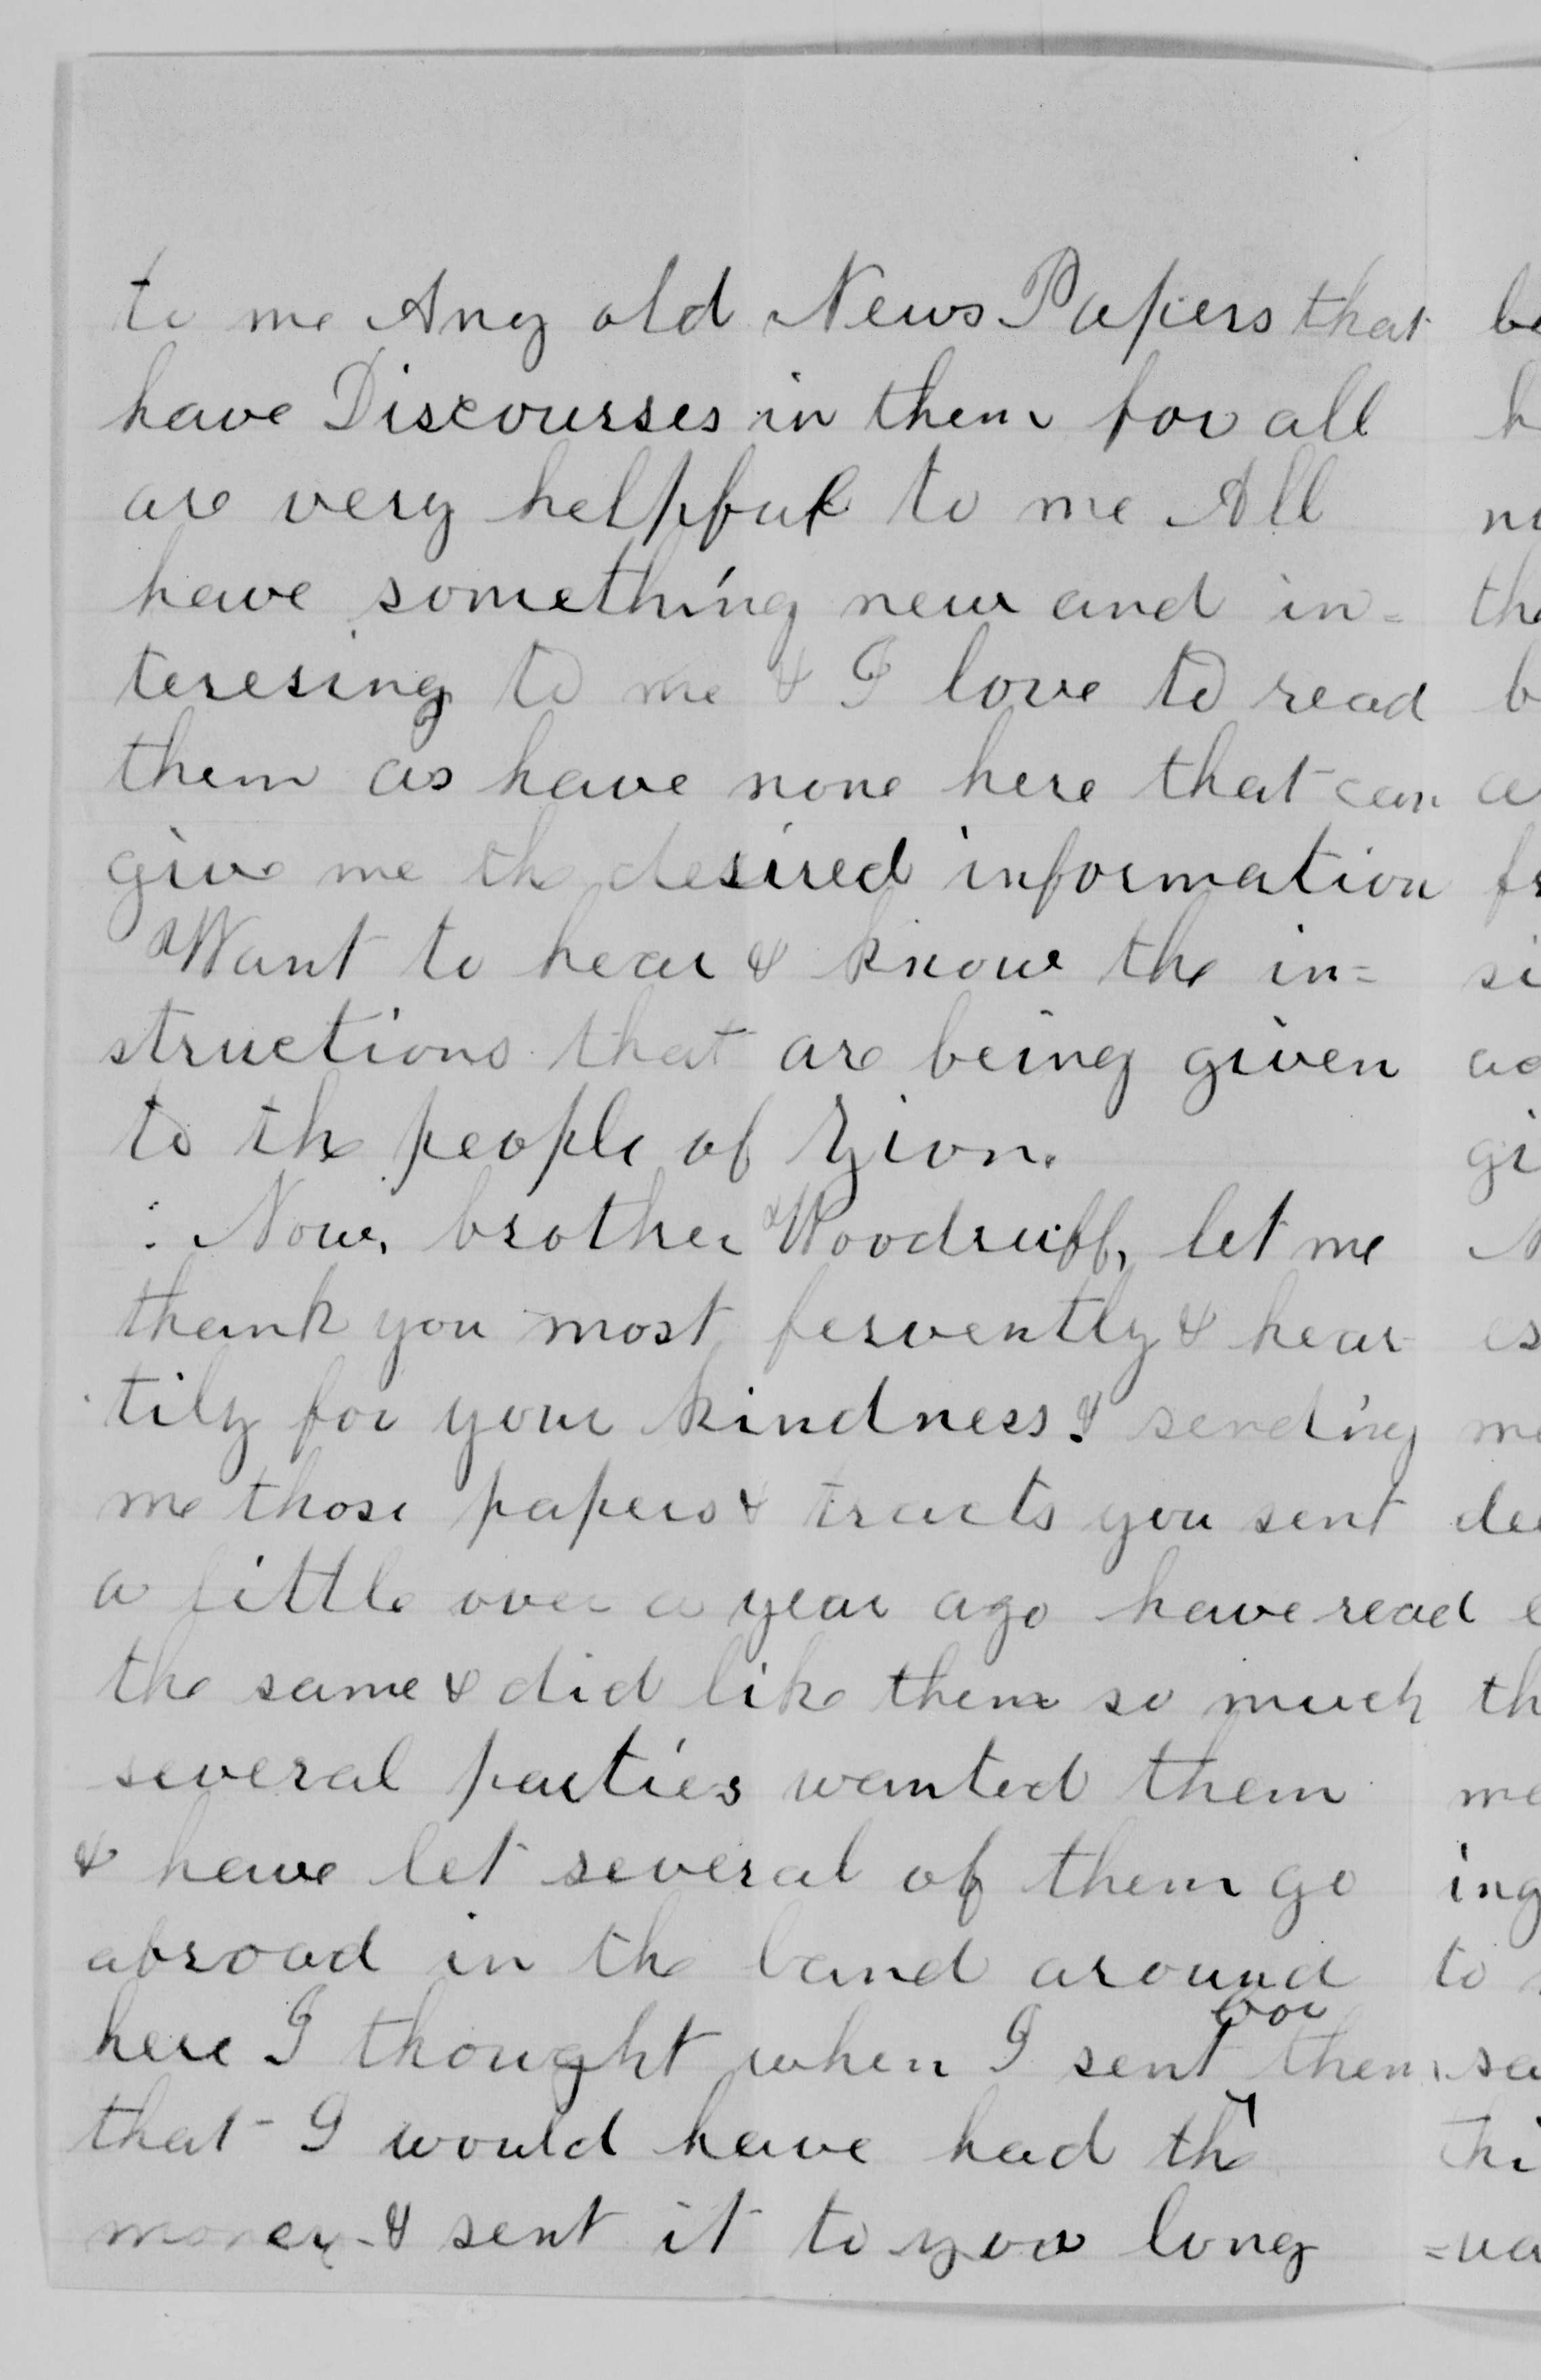 to me Any old News Papers that
have Discourses in them for all
are very helpful to me All
have something new and in=
teresing to me & I love to read
them as have none here that can
give me the desired information
Want to hear & know the in=
structions that are being given
to the people of Zion.
Now, brother Woodruff, let me
thank you most fervently & hear
tily for your kindness & sending
me those papers & tracts you sent
a little over a year ago have read
the same & did like them so much
several parties wanted them
& have let several of them go
abroad in the land around
for
here I thought when I sent them
that I would have had the
money & sent it to you long